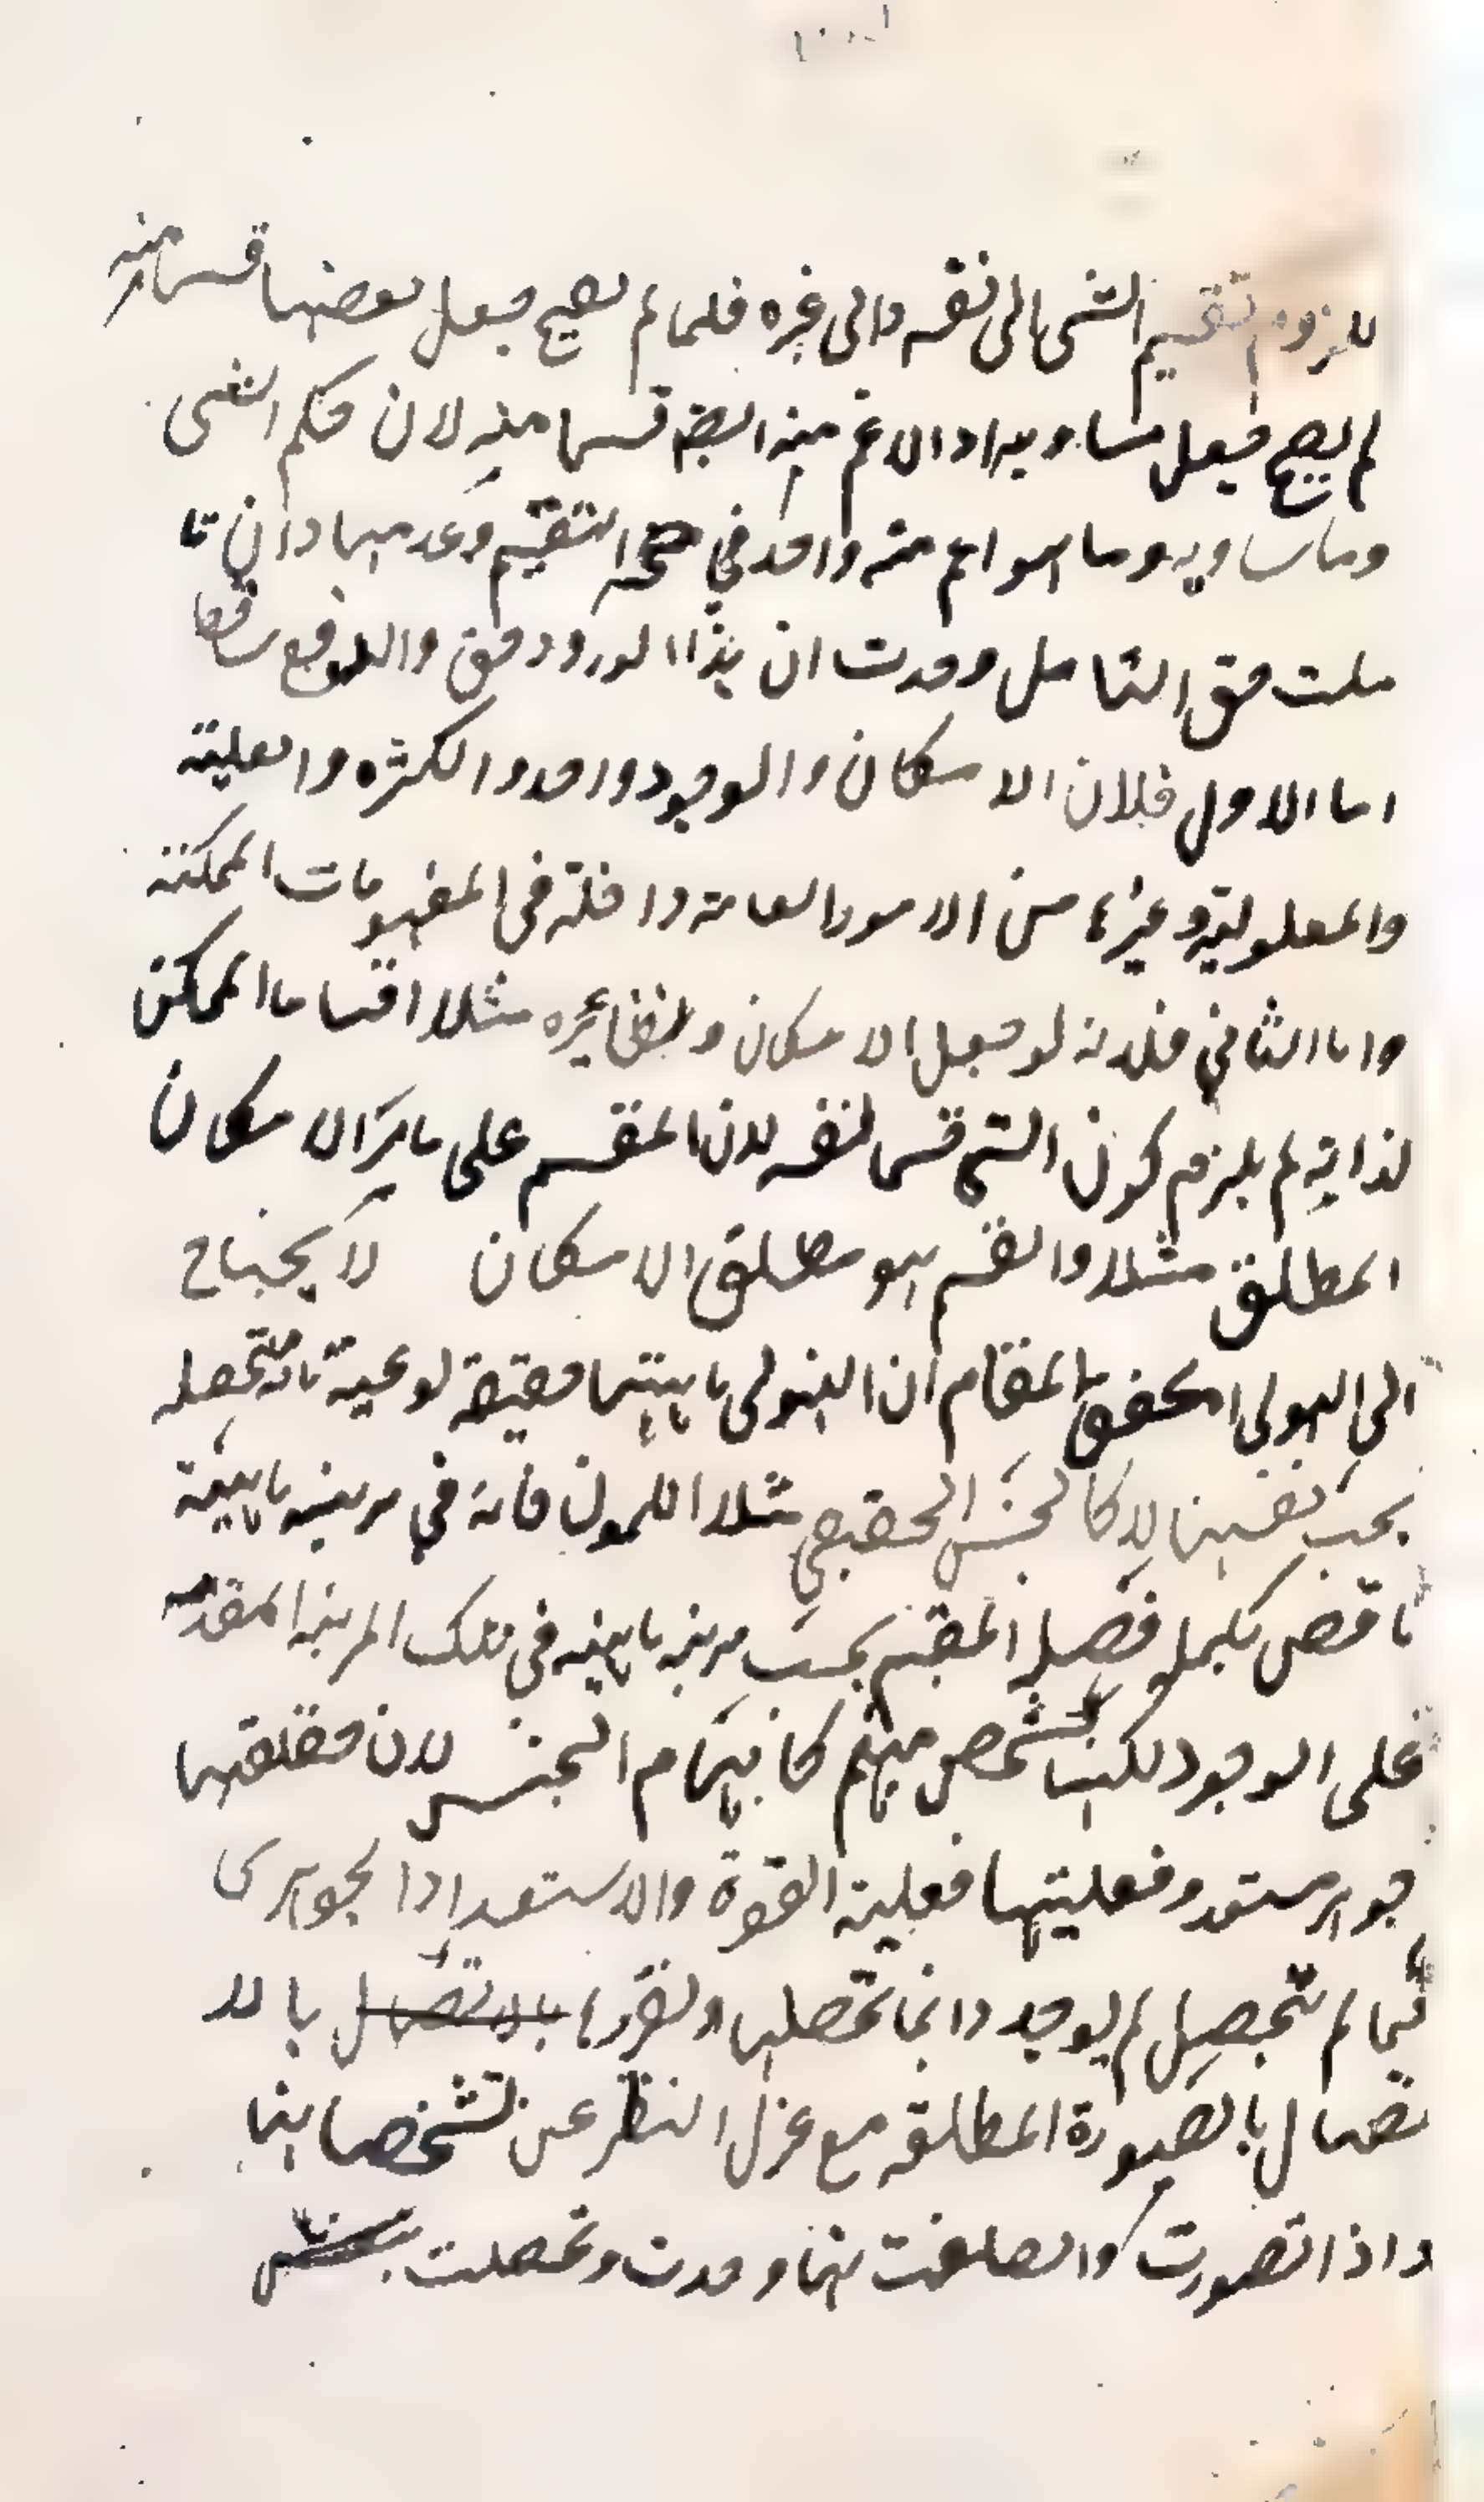 للزوم تقسيم الشئ الى نفسه والى غيره فلما لم يصح جعل بعضها قسما منه
لم يصح جعل مساويه او الاعم منه ايضا قسما منه لان حكم الشى
وما يساويه وما هو اعم منه واحد في صحة التقسيم وعدمها وان تا
ملت حق التامل وجدت ان هذا الورود حق والدفع ساقط
اما الاول فلان الامكان والوجود والوحدة والكثره والعلية
والمعلولية وغيرها من الامور العامة داخلة فى المفهومات الممكنة
واما الثاني فلانه لو جعل الامكان ونظائره مثلا اقساما الممكن
لذاته لم يلزم كون الشى قسما لنفسه لان المقسم على ما مر الامكان
المطلق مثلا والقسم هو مطلق الامكان لا يحتاج
الى الهيولى تحقيق المقام ان الهيولى ماهيتها حقيقة نوعية تامة متحصله
بحسب نفسها لا كالجنس الحقيقي مثلا اللون فانه في مرتبة ماهيته
ناقص يكمله فصله المقسم بحسب مرتبة ماهيته فى تلك المرتبة المقدمه
على الوجود لكنها تشخص مبهم كابهام الجنس لان حقيقتها
جوهر مستعد وفعليتها فعلية القوة والاستعداد الجوهرى
فما لم تتحصل لم يوجد وانما تحصلها وتقررها بالاتصال بالا
تصال بالصورة المطلقة مع عزل النظر عن تشخصاتها
واذا تصورت والصلفت بها وجدت وتحصلت